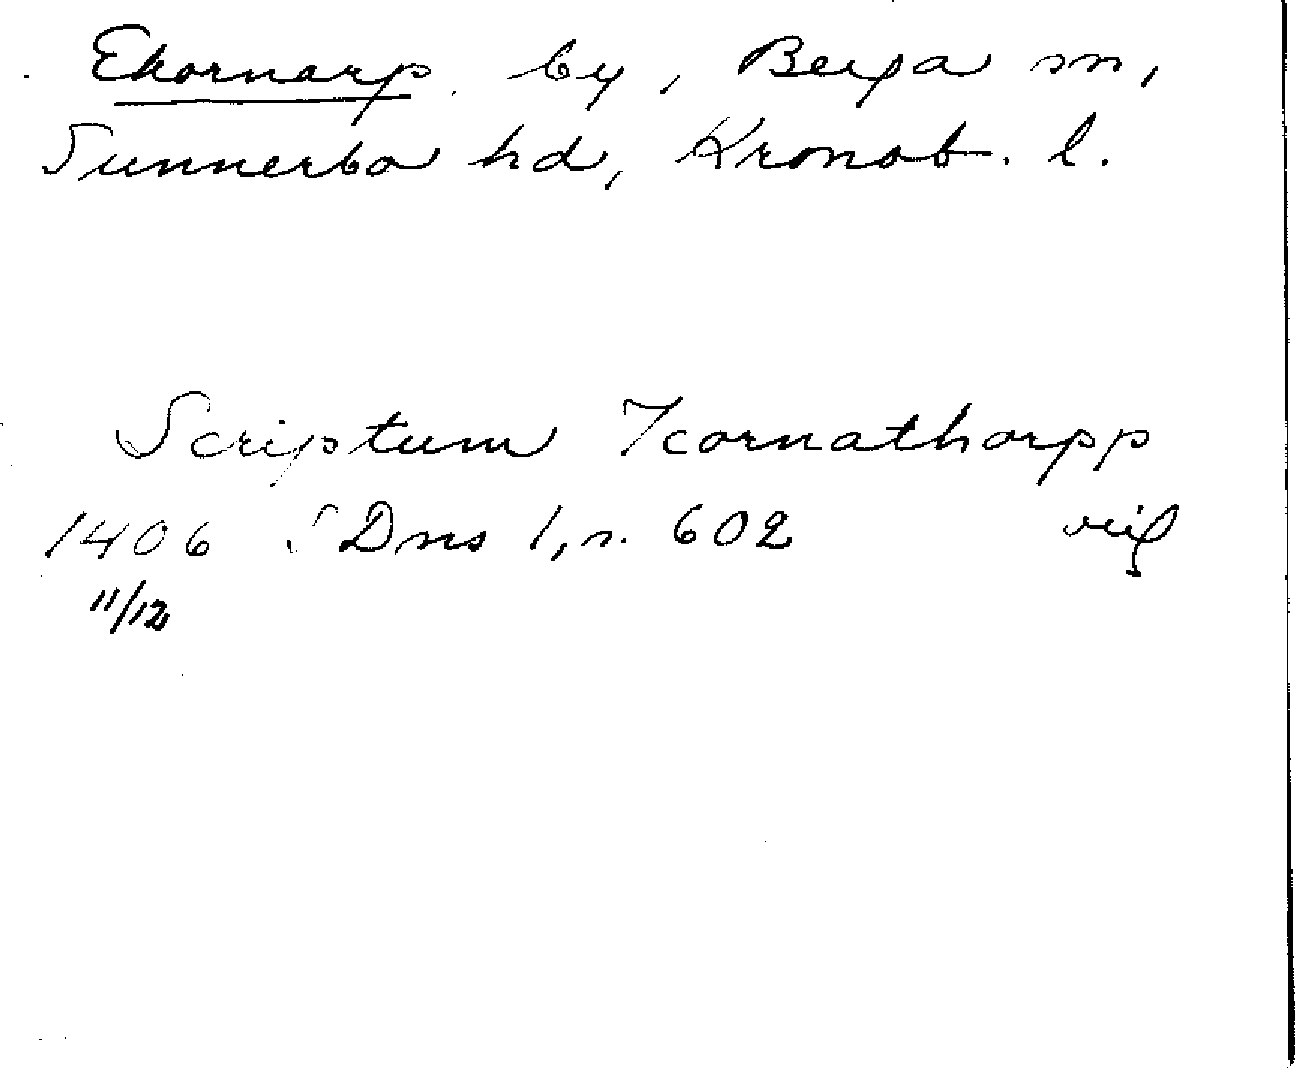 Ekornarp by, Berga sn,
Sunnerbo hd, Kronob. l.
Scriptum Icornathorpp
1406 SDns 1, n. 602
11/12